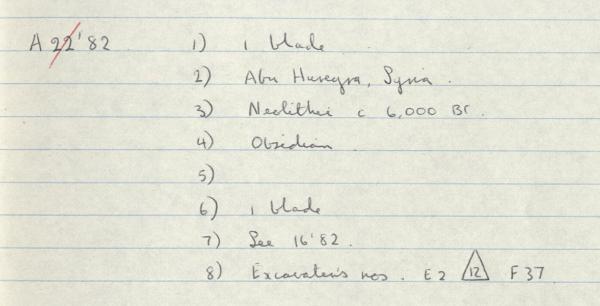 A 22'82 1) 1 blade
2) Abu Hureyra, Syria.
3) Neolithic c 6,000 BC.
4) Obsidian
5)
6) 1 blade
7) See 16'82.
8) Excavator's nos. E2 12 F37